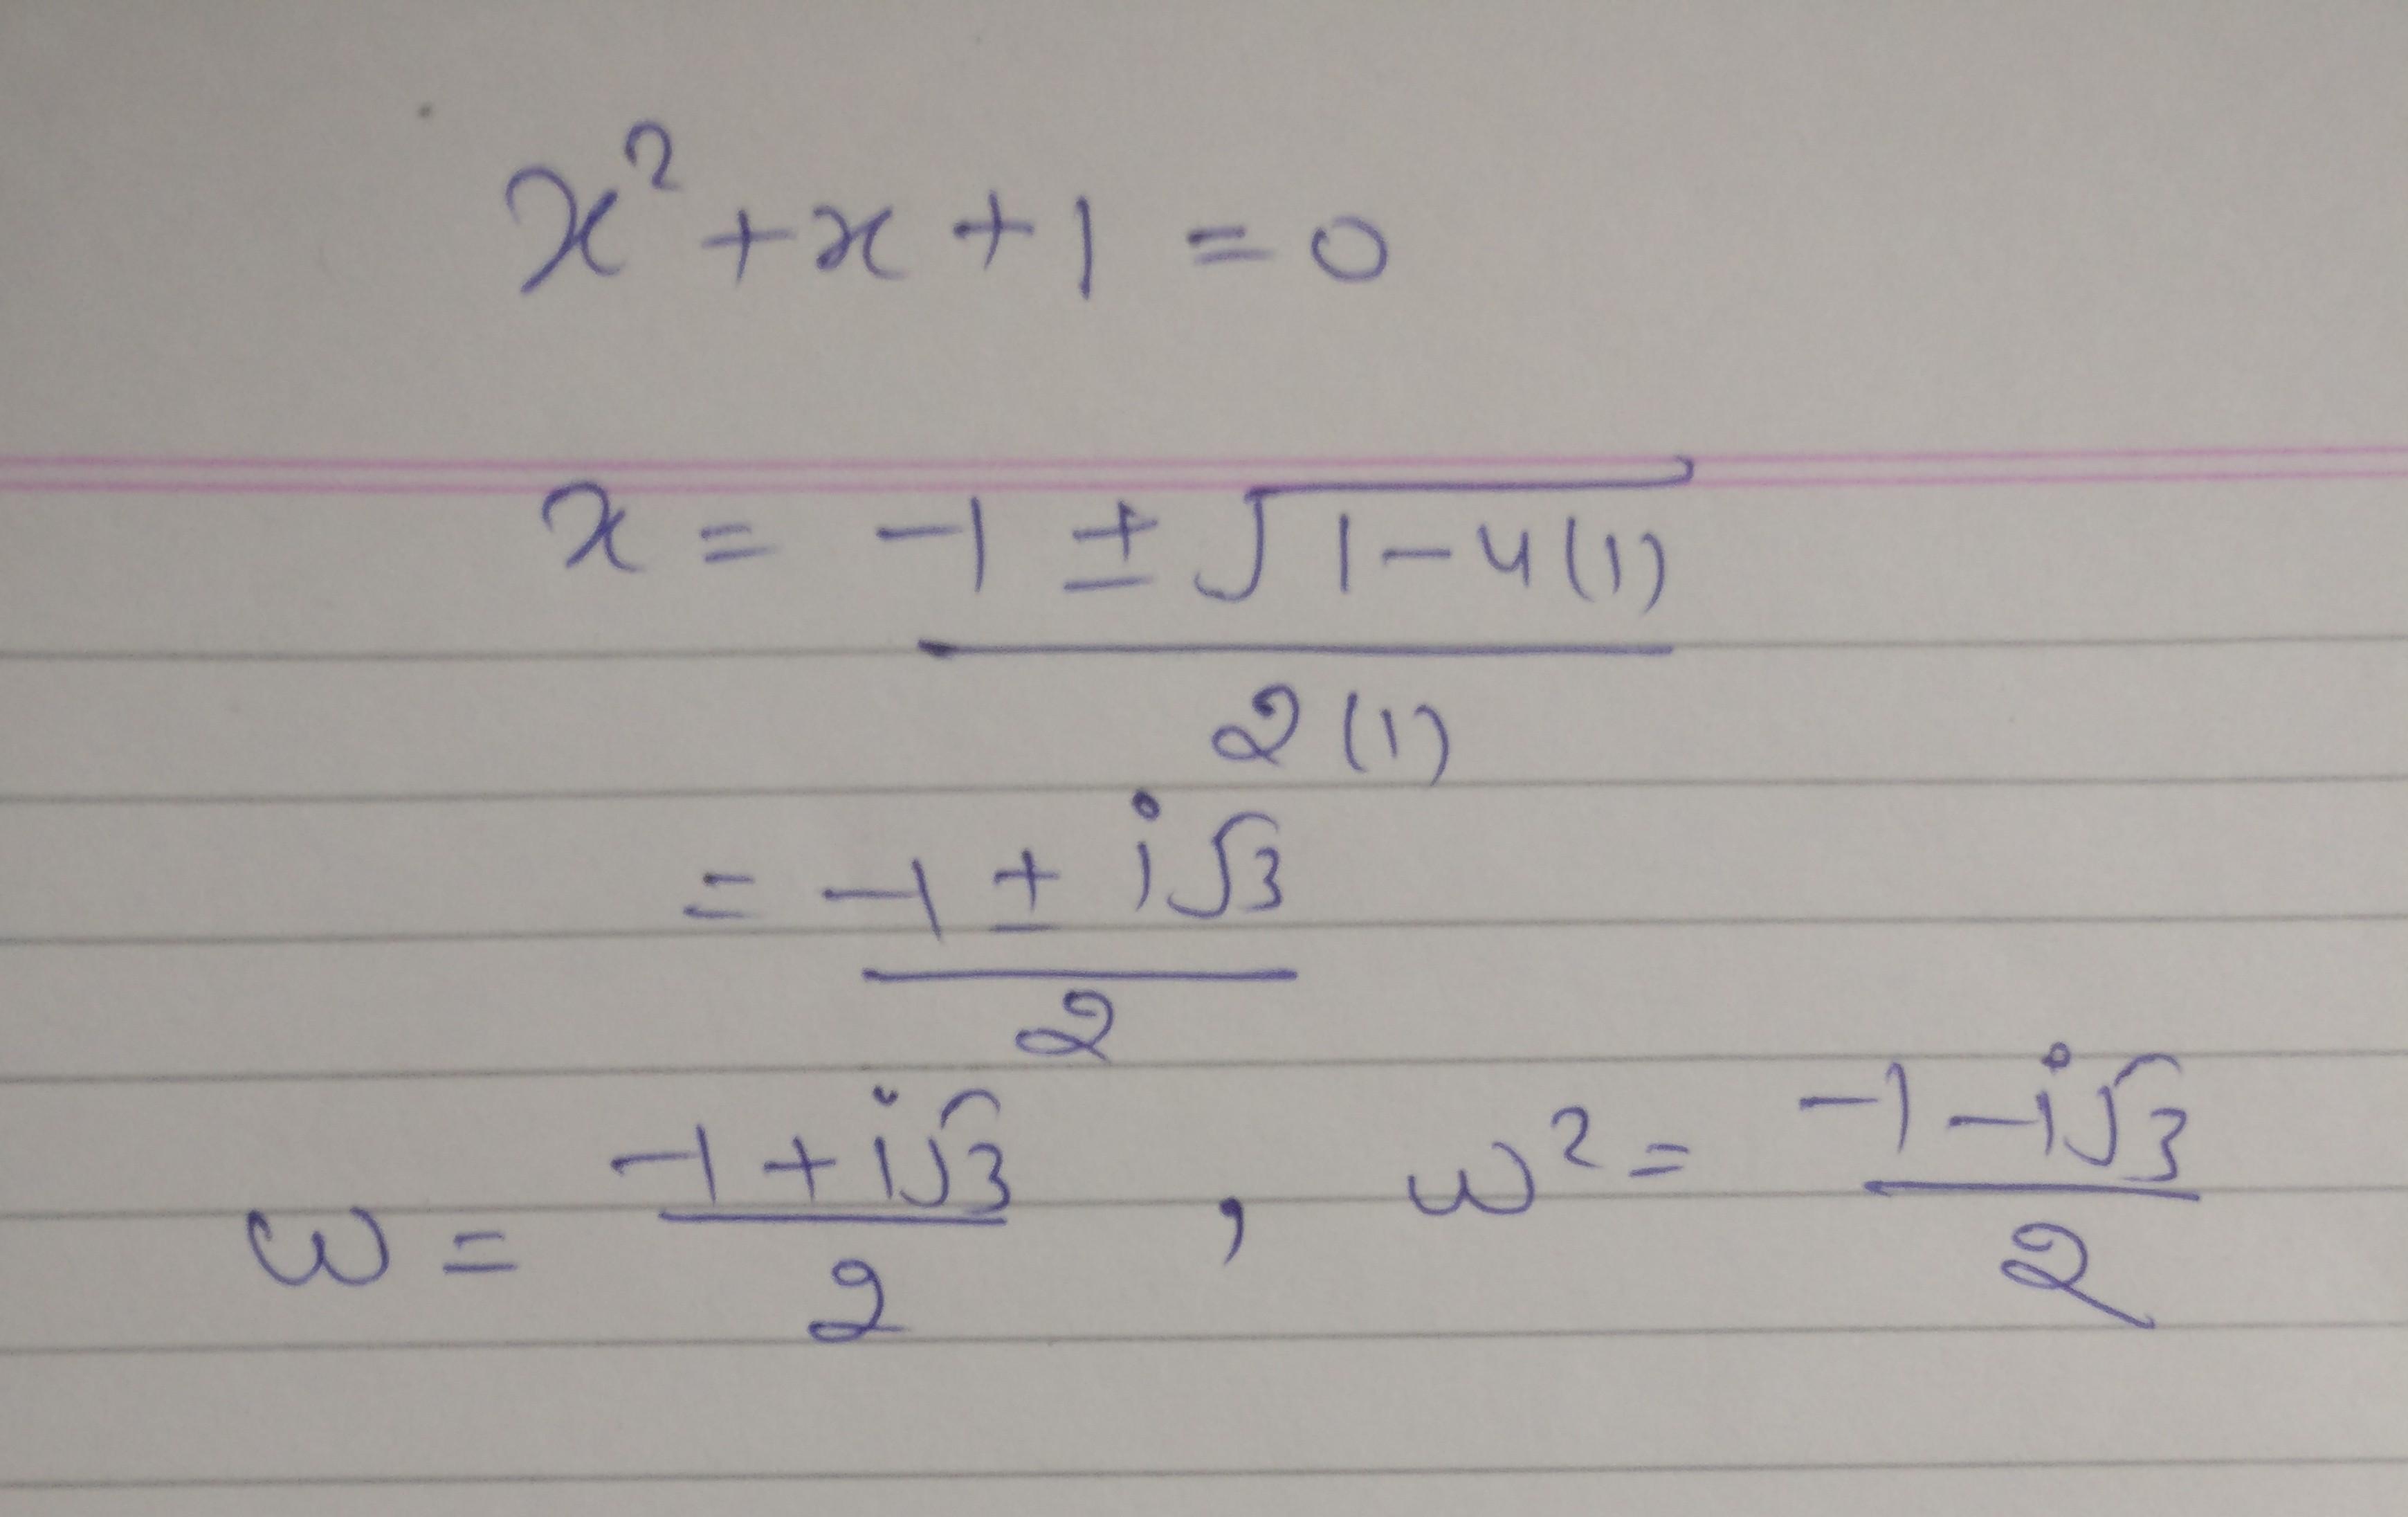 x² + x + 1 = 0
x = (-1 ± √(1 - 4(1))) / 2(1)
= (-1 ± i√3) / 2
ω = (-1 + i√3) / 2 , ω² = (-1 - i√3) / 2